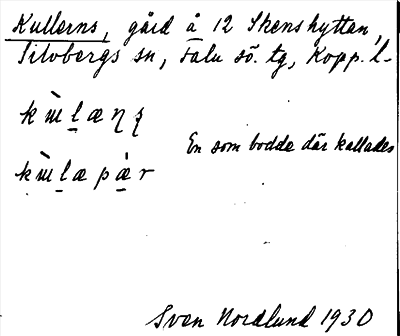 Kullerns, gård å 12 Stenshyttan,
Silvbergs sn, Falu sö. tg, Kopp. l-
En som bodde där kallades
Sven Nordlund 1930